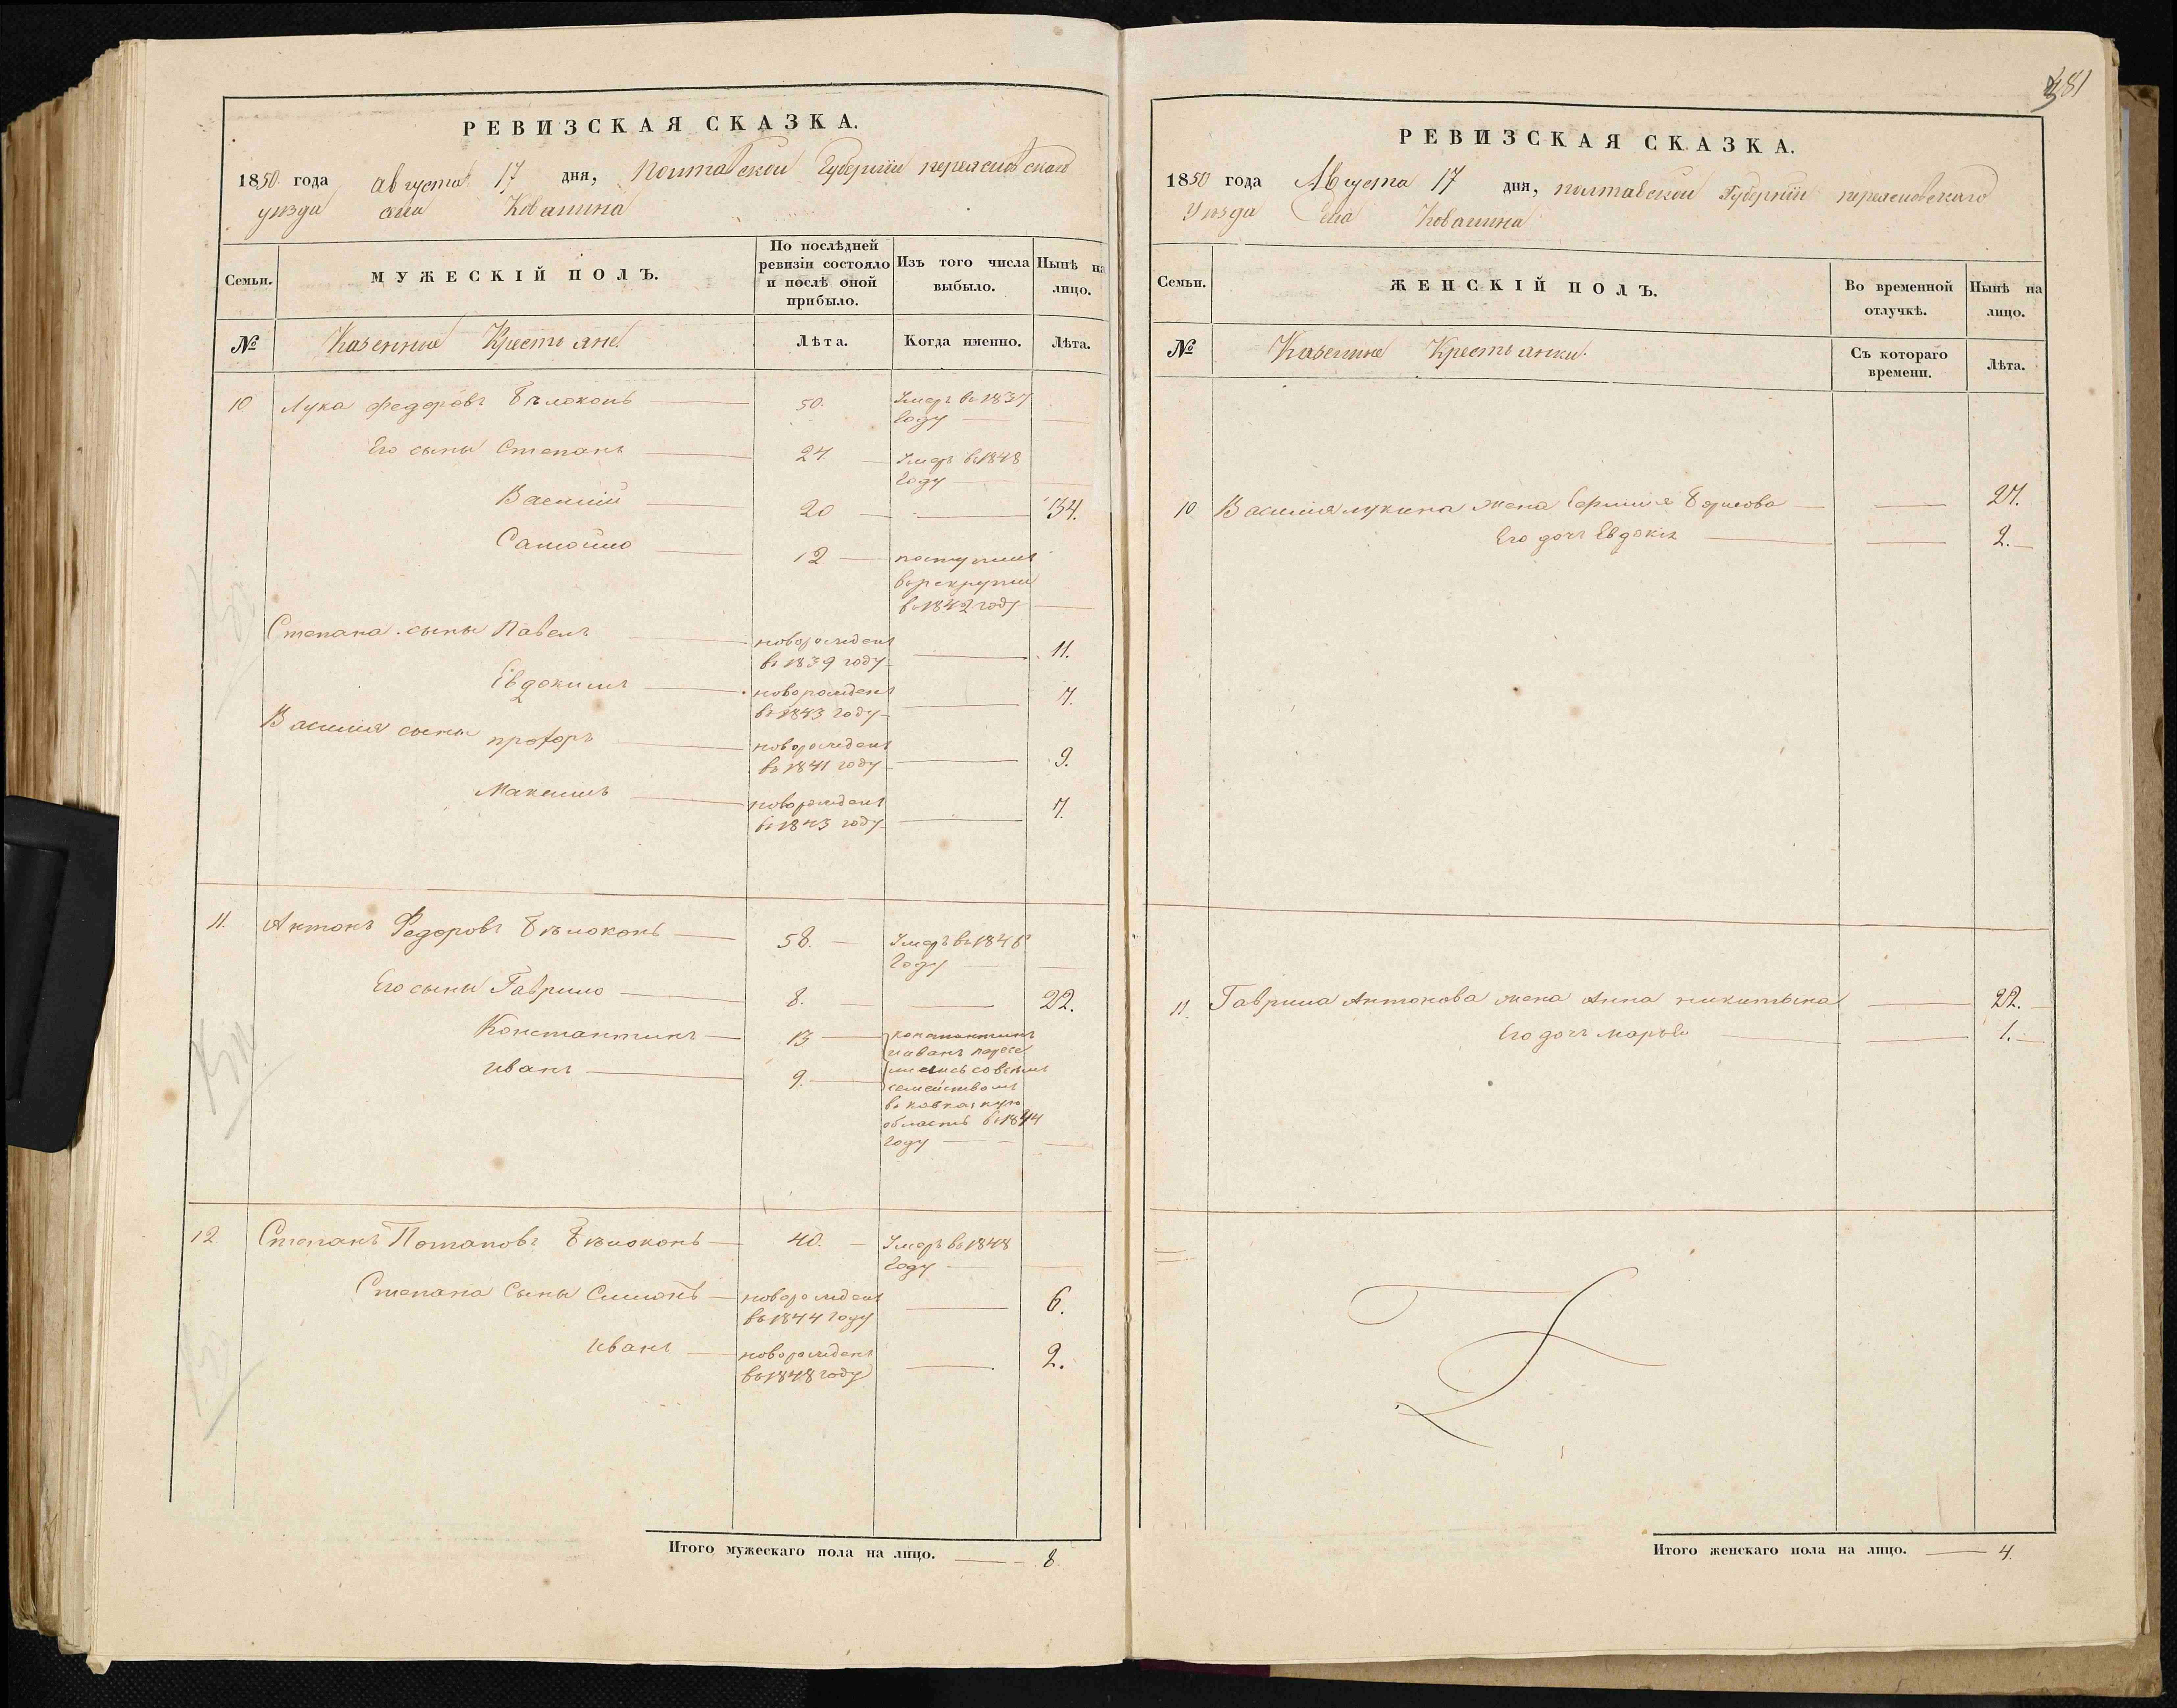 РЕВИЗСКАЯ СКАЗКА.
1850 года августа 17 дня, Полтавской Губернии переясловского
уезда села Ковалина
Семьи.
МУЖЕСКІЙ ПОЛЪ.
По послѣдней ревизіи состояло и послѣ оной прибыло.
Изъ того числа выбыло.
Нынѣ на лицо.
№
Казенние Крестьяне.
Лѣта.
Когда именно.
Лѣта.
10 Лука федоровъ Бѣлоконь 50. Умеръ въ 1837
году
Его сыны Степанъ 24. Умеръ въ 1848
году
Василий 20 34.
Самойло 12 поступилъ
въ рекруты
в 1842 году
Степана сыны Павелъ новорожденъ
въ 1839 году 11.
Евдокимъ новорожденъ
въ 1843 году 7.
Василия сыны прохоръ новорожденъ
въ 1841 году 9.
Максимъ новорожденъ
въ 1843 году 7.
11. Антонъ Федоровъ Бѣлоконь 58. Умеръ въ 1846
году
Его сыны Гаврило 8. 22.
Константинъ 13 константинъ
Иванъ 9. иванъ пересе
лились совсемъ
семействомъ
в кавказкую
область въ 1844
году
12 Степанъ Потаповъ Бѣлоконь 40. Умеръ въ 1848
году
Степана Сыны Симонъ новорожденъ
въ 1844 году 6.
Иванъ новорожденъ
въ 1848 году 2.
Итого мужескаго пола на лицо. 8
381
РЕВИЗСКАЯ СКАЗКА.
1850 года Августа 17 дня, полтавской Губернии переясловскаго
Уезда Села Ковалина
Семьи.
ЖЕНСКІЙ ПОЛЪ.
Во временной отлучкѣ.
Нынѣ на лицо.
№
Казенние Крестьянки.
Съ котораго времени.
Лѣта.
10 Василия лукина жена Борисова 27.
Его дочь Евдокия 2.
11. Гаврила Антонова жена Анна никитына 22.
Его дочь марья 1.
Итого женскаго пола на лицо. 4.